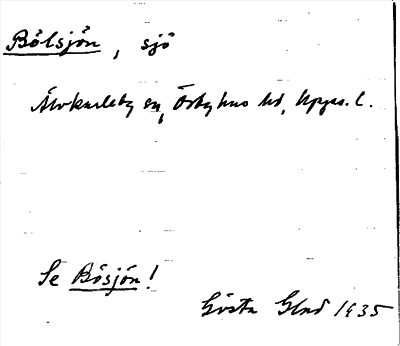 Bölsjön, sjö
Älvkarleby sn, Örbyhus hd, Upps. l.
Se Bösjön!
Gösta Glad 1935